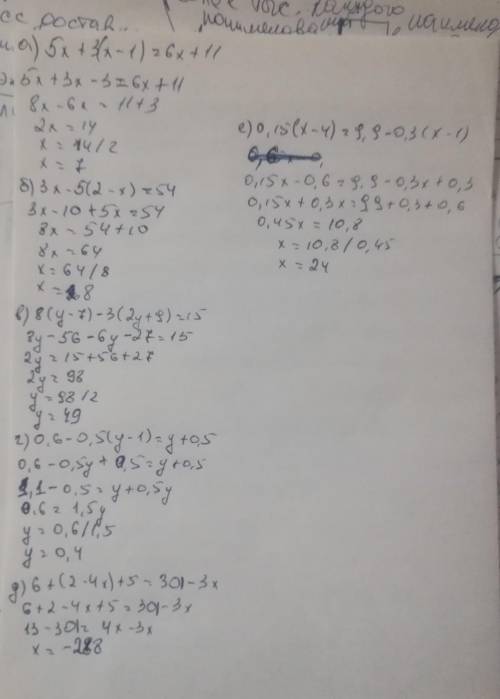 а) 5x + 3(x-1) = 6x + 11
5x + 3x - 3 = 6x + 11
8x - 6x = 11 + 3
2x = 14
x = 14/2
x = 7
б) 3x - 5(2-x) = 54
3x - 10 + 5x = 54
8x = 54 + 10
8x = 64
x = 64/8
x = 8
в) 8(y-7) - 3(2y+9) = 15
8y - 56 - 6y - 27 = 15
2y = 15 + 56 + 27
2y = 98
y = 98/2
y = 49
г) 0,6 - 0,5(y-1) = y + 0,5
0,6 - 0,5y + 0,5 = y + 0,5
1,1 - 0,5 = y + 0,5y
0,6 = 1,5y
y = 0,6/1,5
y = 0,4
д) 6 + (2-4x) + 5 = 301 - 3x
6 + 2 - 4x + 5 = 301 - 3x
13 - 301 = 4x - 3x
x = -288
е) 0,15(x-4) = 9,9 - 0,3(x-1)
0,15x - 0,6 = 9,9 - 0,3x + 0,3
0,15x + 0,3x = 9,9 + 0,3 + 0,6
0,45x = 10,8
x = 10,8/0,45
x = 24